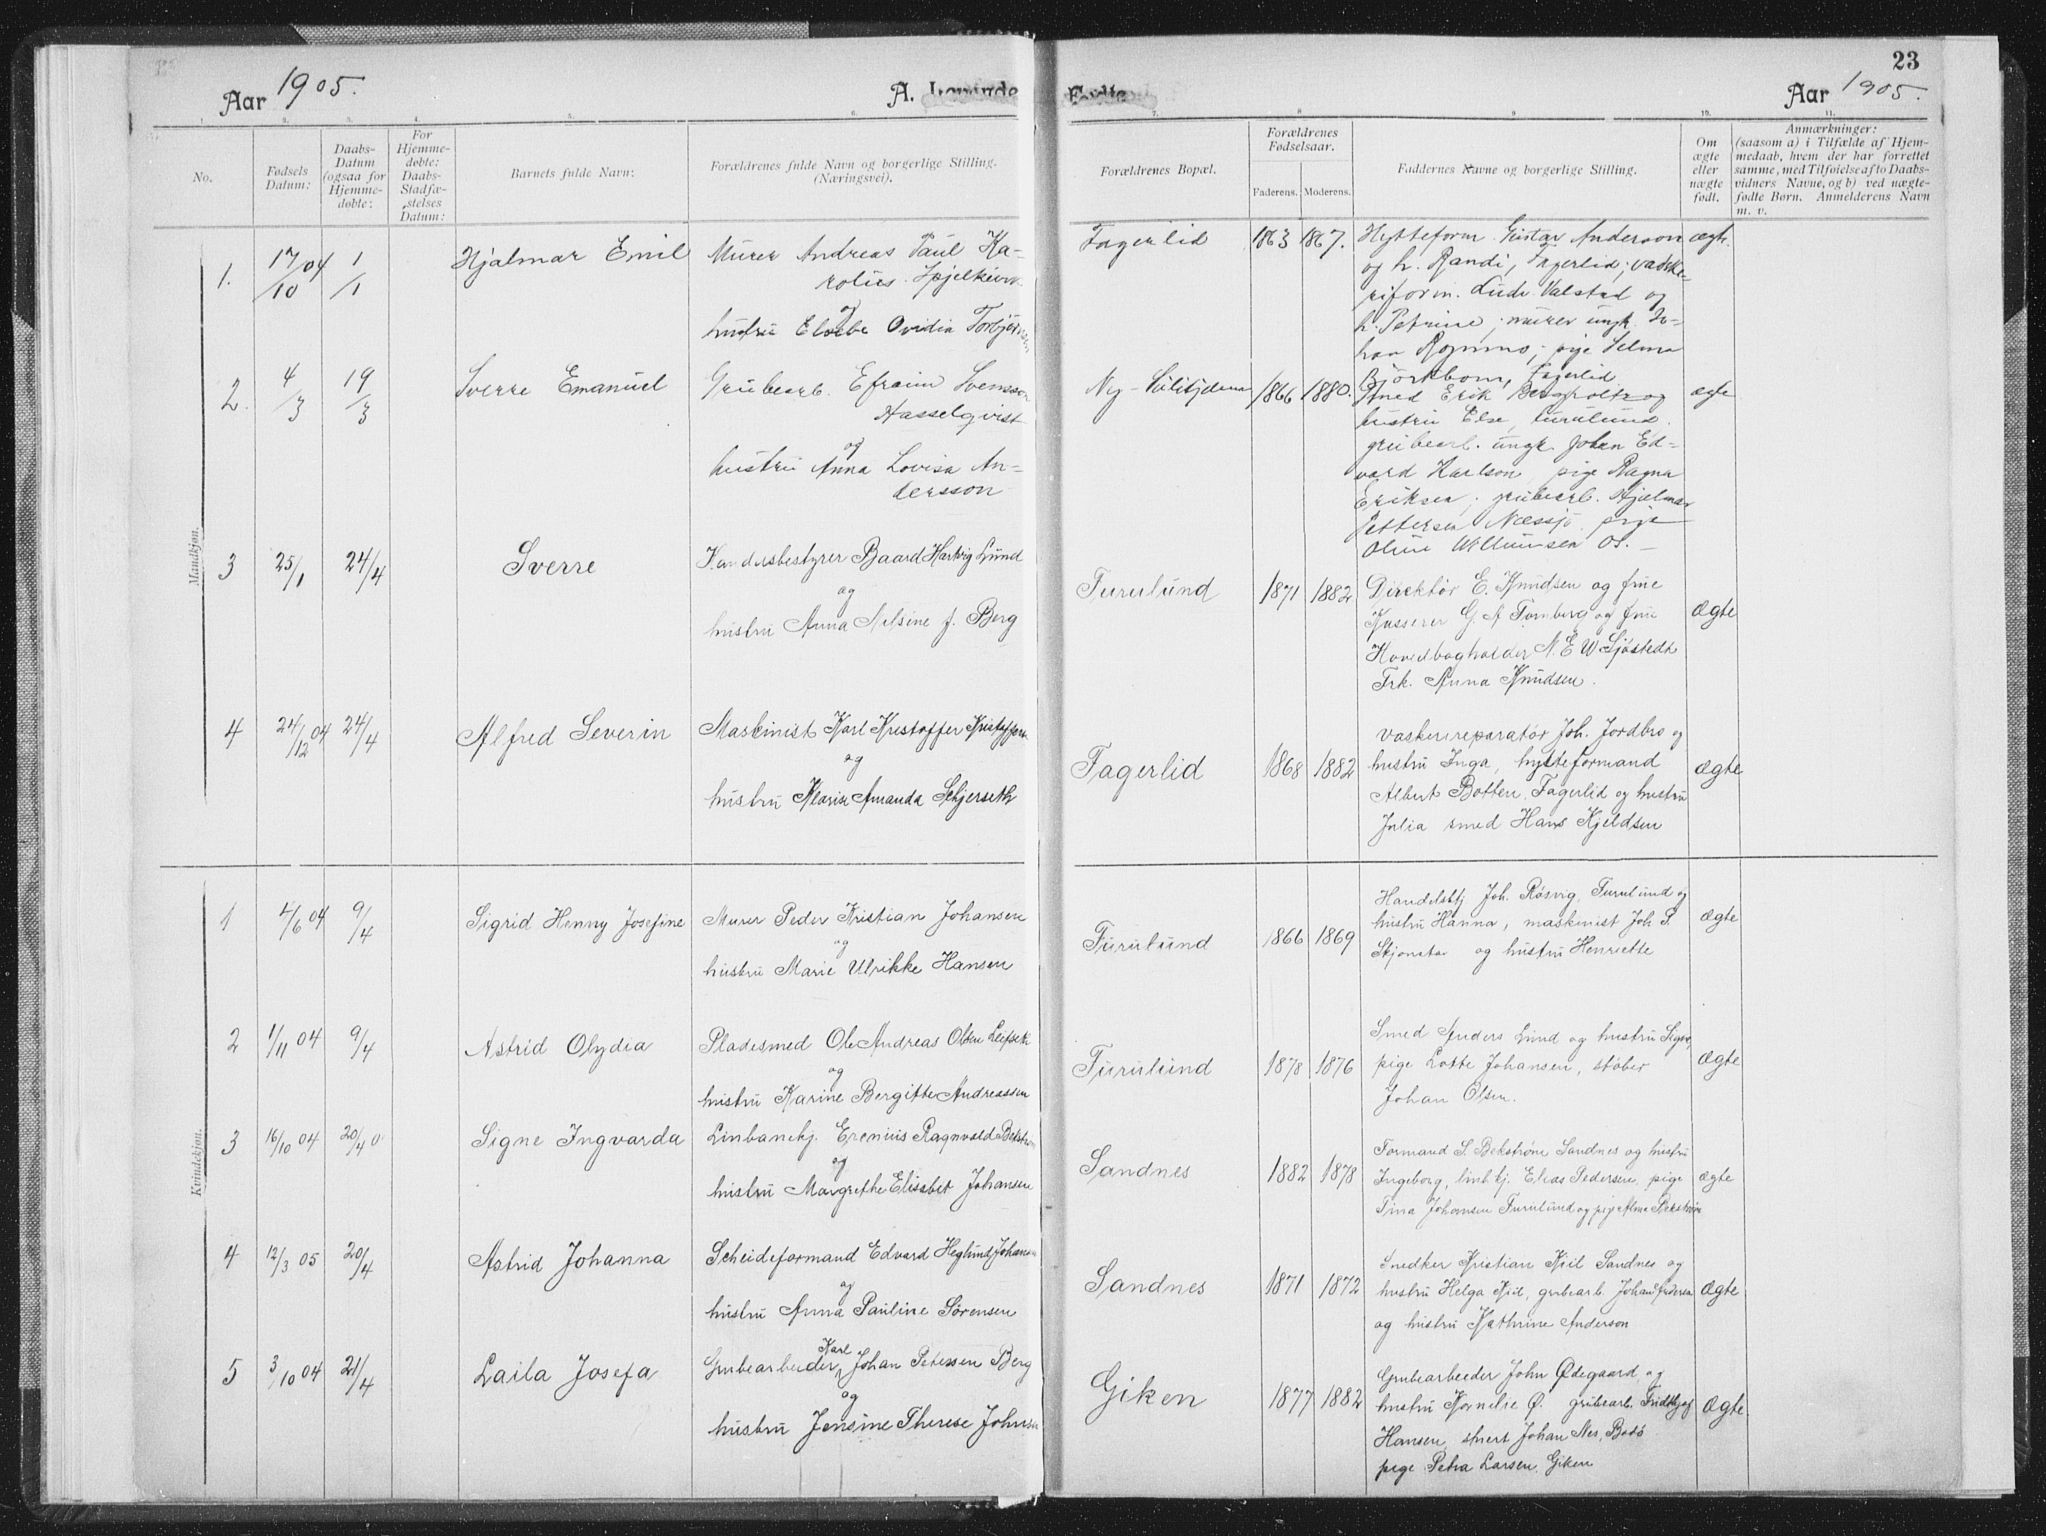 23
Aar 1905.
A. Levende
Fødte
Aar 1905.
1. 2. 3. 4. 5. 6. 7. 8 9 10. 11.
No.
Fødsels Datum:
Daabs-Datum (ogsaa for Hjemme-døbte:
For Hjemme-døbte: Daabs-Stadfæ-stelses Datum:
Barnets fulde Navn:
Forældrenes fulde Navn og borgerlige Stilling.
(Næringsvei).
Forældrenes Bopæl.
Forældrenes Fødselsaar.
Faderens. Moderens.
Faddernes Navne og borgerlige Stilling.
Om ægte eller nægte født.
Anmærkninger:
(saasom a) i Tilfælde af Hjem-
medaab, hvem der har forrettet
samme, med Tilføielse af to Daabs-
vidners Navne, og b) ved nægte-
fødte Børn. Anmelderens Navn
m. v.
Mandkjøn.
1. 17/10 04 1/1 Hjalmar Emil
Murer Andreas Paul Ka-
rolius
og
hustru Elsebe Ovidia
Fagerlid 1863 1867.
Hytteform. Gustav Anderson
og h. Randi, Fagerlid; vaske-
riform. Ludv. Valstad og
h. Petrine; murer ungk. Jo-
han pige Selma
Björkbom, Fagerlid
ægte
2. 4/3 19/3 Sverre Emanuel
Grubearb. Efraim Svensson
Hasselqvist
og
hustru Anna Lovisa An-
dersson
1866 1880.
Smed Erik og
hustru Else, Furulund.
grubearb. ungk. Johan Ed-
vard Karlson pige Ragna
Eriksen; grubearb. Hjalmar
Pettersen pige
Oline Willumsen
ægte
3 25/1 24/4 Sverre
Handelsbestyrer Baard Hartvig Lund
og
hustru Anna Nilsine f. Berg
Furulund 1871 1882
Direktør E. Knudsen og frue
Kasserer G. A Tornberg og frue
Hovedbogholder N. E W Sjöstedt
Frk. Anna Knudsen.
ægte
4 24/12 04 24/4 Alfred Severin
Maskinist Karl Kristoffer
og
hustru Amanda
Fagerlid 1868 1882
Vaskerireparatør Joh. Jordbro og
hustru Inga, hytteformand
Albert Botten, Fagerlid og hustru
Julia smed Hans Kjeldsen
ægte
Kvindekjøn.
1 4/6 04 9/4 Sigrid Henny Josefine
Murer Peder Kristian Johansen
og
hustru Marie Ulrikke Hansen
Furulund 1866 1869
Handelsbtj. Joh. Røsvig, Furulund og
hustru Hanna, maskinist Joh. P.
Skjonstar og hustru Henriette
ægte
2 1/11 04 9/4 Astrid Olydia
Pladesmed Ole Andreas Olsen Leifseth
og
hustru Karine Bergitte Andreassen
Furulund 1878 1876
Smed Anders Lund og hustru
pige Lotte Johansen, støber
Johan Olsen.
ægte
3 16/10 04 20/4 Signe Ingvarda
Linbanebtj. Erenius Ragnvald
og
hustru Margrethe Elisabet Johansen
Sandnes 1882 1878
Formand S. Bekstrøm Sandnes og hustru
Ingeborg, linbtj. Elias Pedersen, pige
Tina Johansen Furulund og pige Alma Bekstrøm
ægte
4 12/3 05 20/4 Astrid Johanna
Scheideformand Edvard Heglund Johansen
og
hustru Anna Pauline Sørensen
Sandnes 1871 1872
Snedker Kristian Kiil Sandnes og
hustru Helga Kiil, grubearb. Johan
og hustru Kathrine Anderson
ægte
5 3/10 04 21/4 Laila Josefa
Grubearbeider Karl Johan Petersen Berg
og
hustru Jensine Therese
Giken 1877 1882
Grubearbeider John Ødegaard og
hustru Kornelie Ø. grubearb. Fridtjof
Hansen, Johan Nes, Bodø
pige Petra Larsen, Giken
ægte